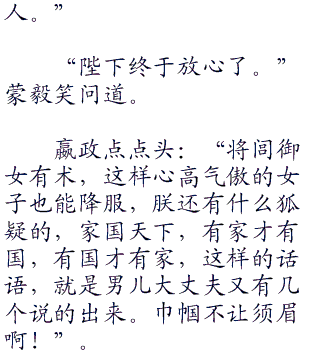 人。”
“陛下终于放心了。”
蒙毅笑问道。
嬴政点点头：“将闾御
女有术，这样心高气傲的女
子也能降服，朕还有什么狐
疑的，家国天下，有家才有
国，有国才有家，这样的话
语，就是男儿大丈夫又有几
个说的出来。巾帼不让须眉
啊！”。